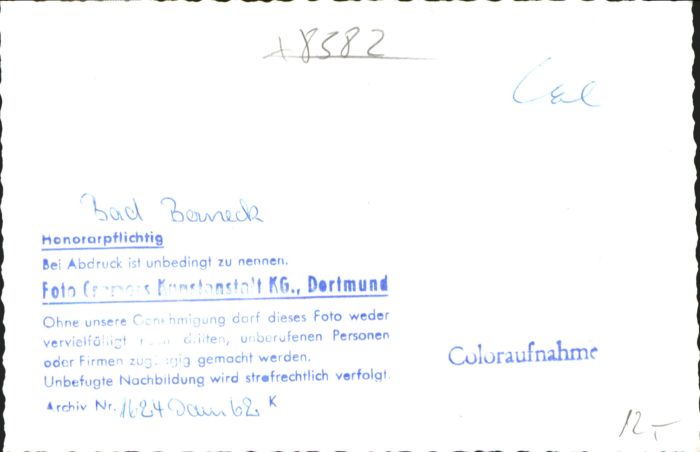 8382
Bad Berneck
Honorarpflichtig
Bei Abdruck ist unbedingt zu nennen.
Foto Kunstanstalt KG., Dortmund
Ohne unsere Genehmigung darf dieses Foto weder
vervielfältigt noch dritten, unberufenen Personen
oder Firmen zugängig gemacht werden.
Unbefugte Nachbildung wird strafrechtlich verfolgt.
Coloraufnahme
Archiv Nr. K
12,-